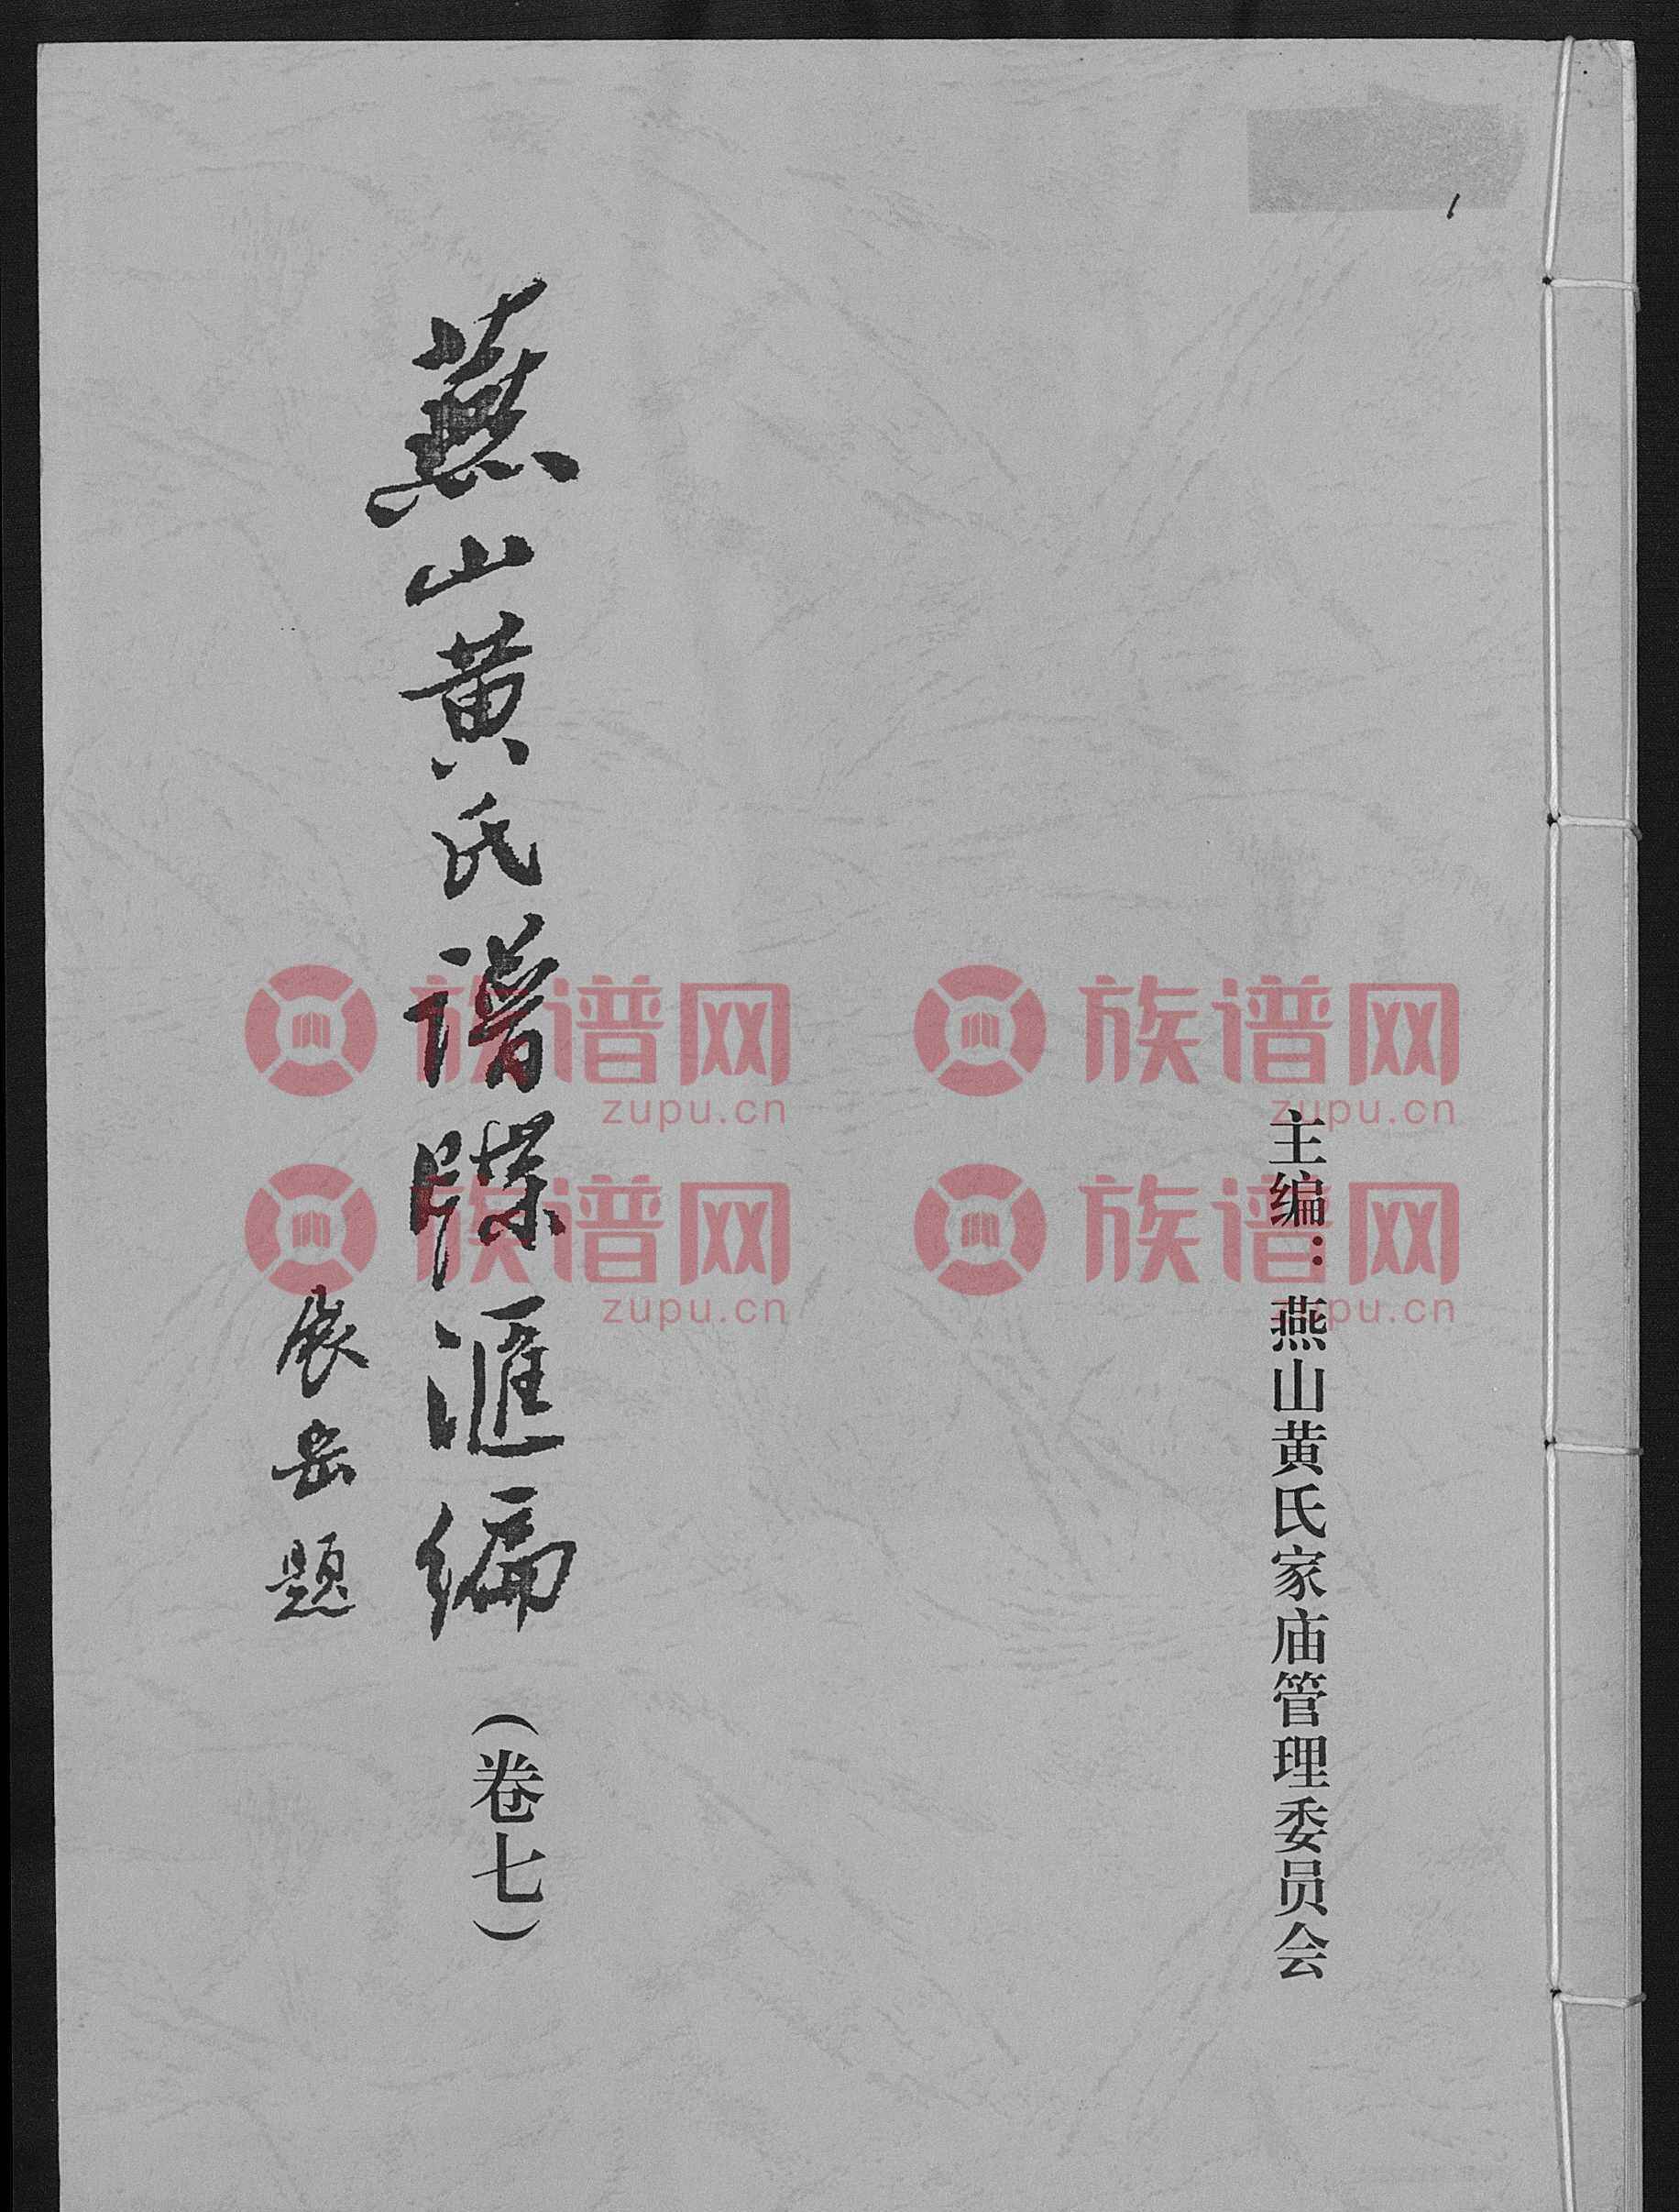 主编：燕山黄氏家庙管理委员会
燕山黄氏谱牒滙编（卷七）
展岳题
族谱网
zupu.cn
族谱网
zupu.cn
族谱网
zupu.cn
族谱网
zupu.cn